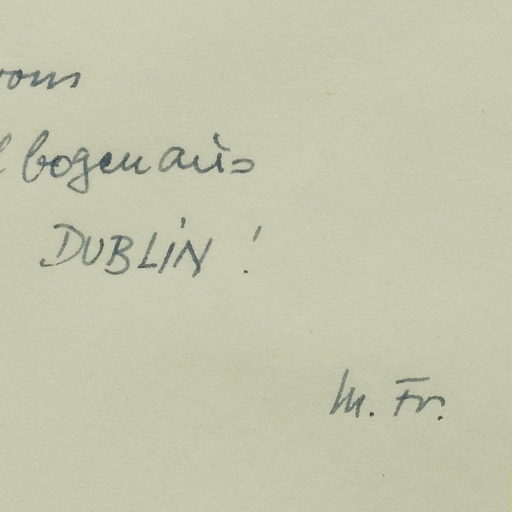 vom
bogen aus
DUBLIN!
M. Fr.